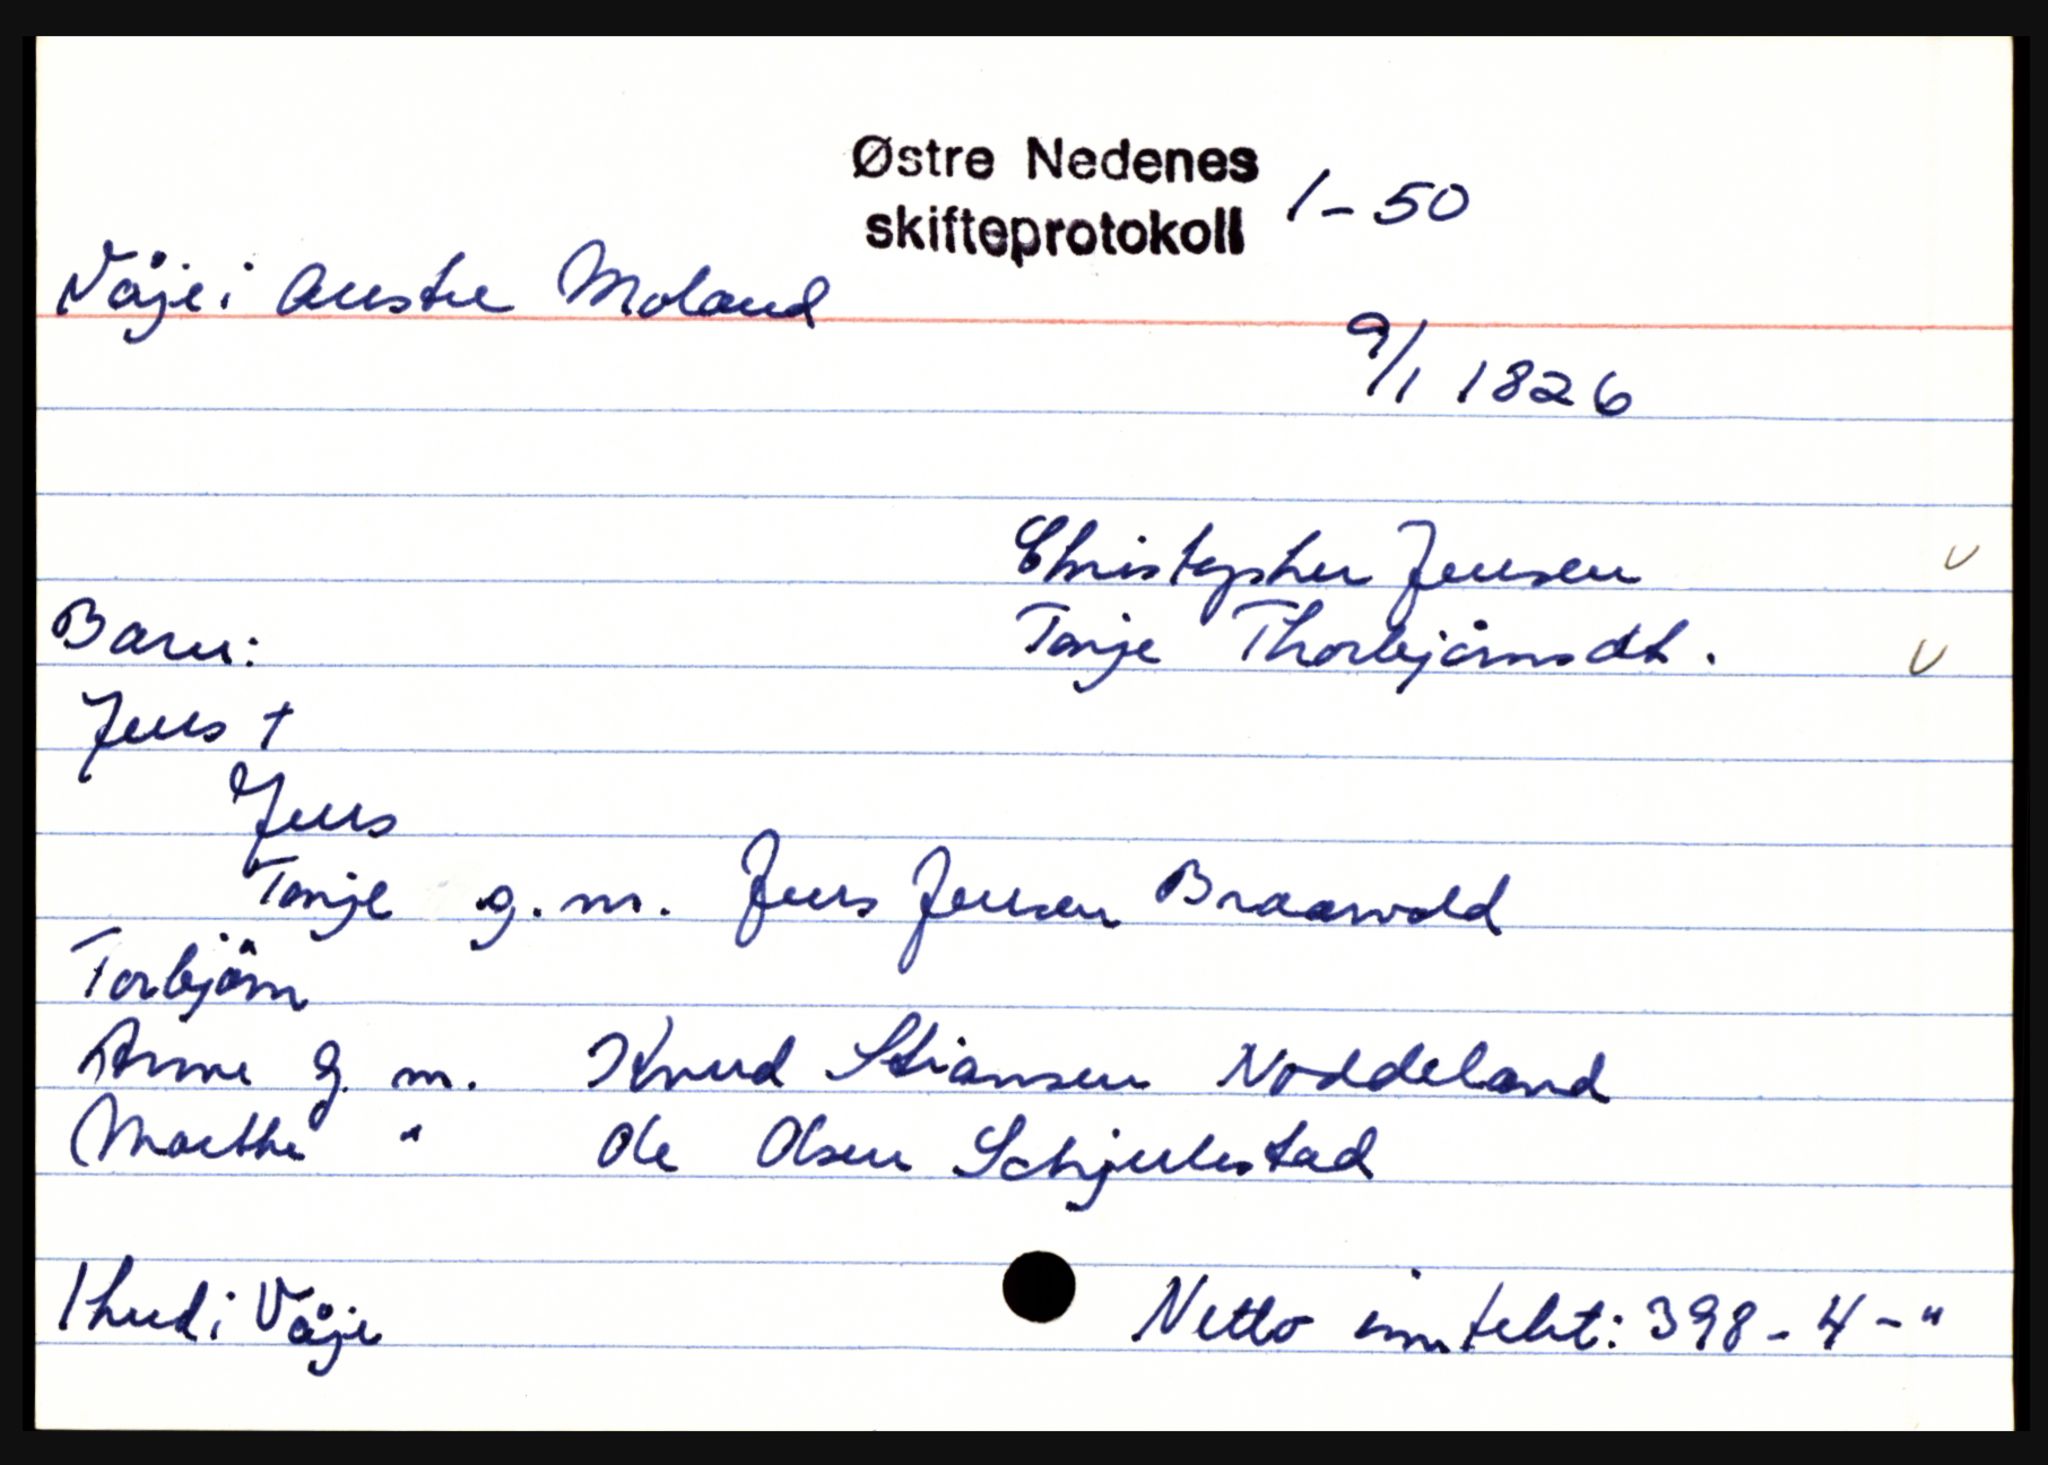 Østre Nedenes
skifteprotokoll 1-50
Våje i Austre Moland
9/1 1826
Christopher Jensen v
Barn:
Tonje Thorbjörnsdt. v
Jens †
Jens
Tonje g.m. Jens Jensen Braavold
Torbjörn
Anne g.m. Knud Stiansen Noddeland
Marthe " Ole Olsen Schjulestad
1 hud i Våje
Netto inntekt: 398-4-"